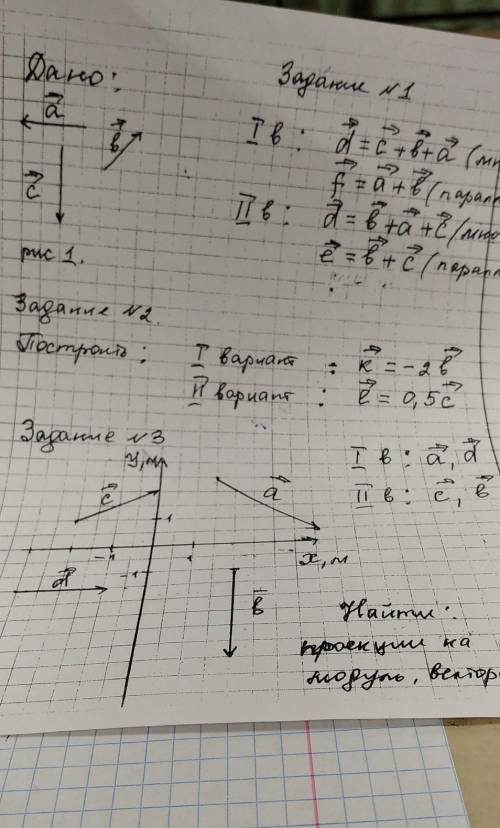 Дано:
Задание №1
a⃗
b⃗
c⃗
I в: d⃗ = c⃗ + b⃗ + a⃗ (мн
f⃗ = a⃗ + b⃗ (парал
II в: d⃗ = b⃗ + a⃗ + c⃗ (мно
e⃗ = b⃗ + c⃗ (парал
рис 1.
Задание №2.
Построить: I вариант : k⃗ = -2b⃗
II вариант : e⃗ = 0,5c⃗
Задание №3
I в: a⃗, d⃗
II в: c⃗, b⃗
y, м
c⃗
a⃗
1
-1
1
x, м
-1
d⃗
b⃗
Найти:
проекции на
модуль, вектор